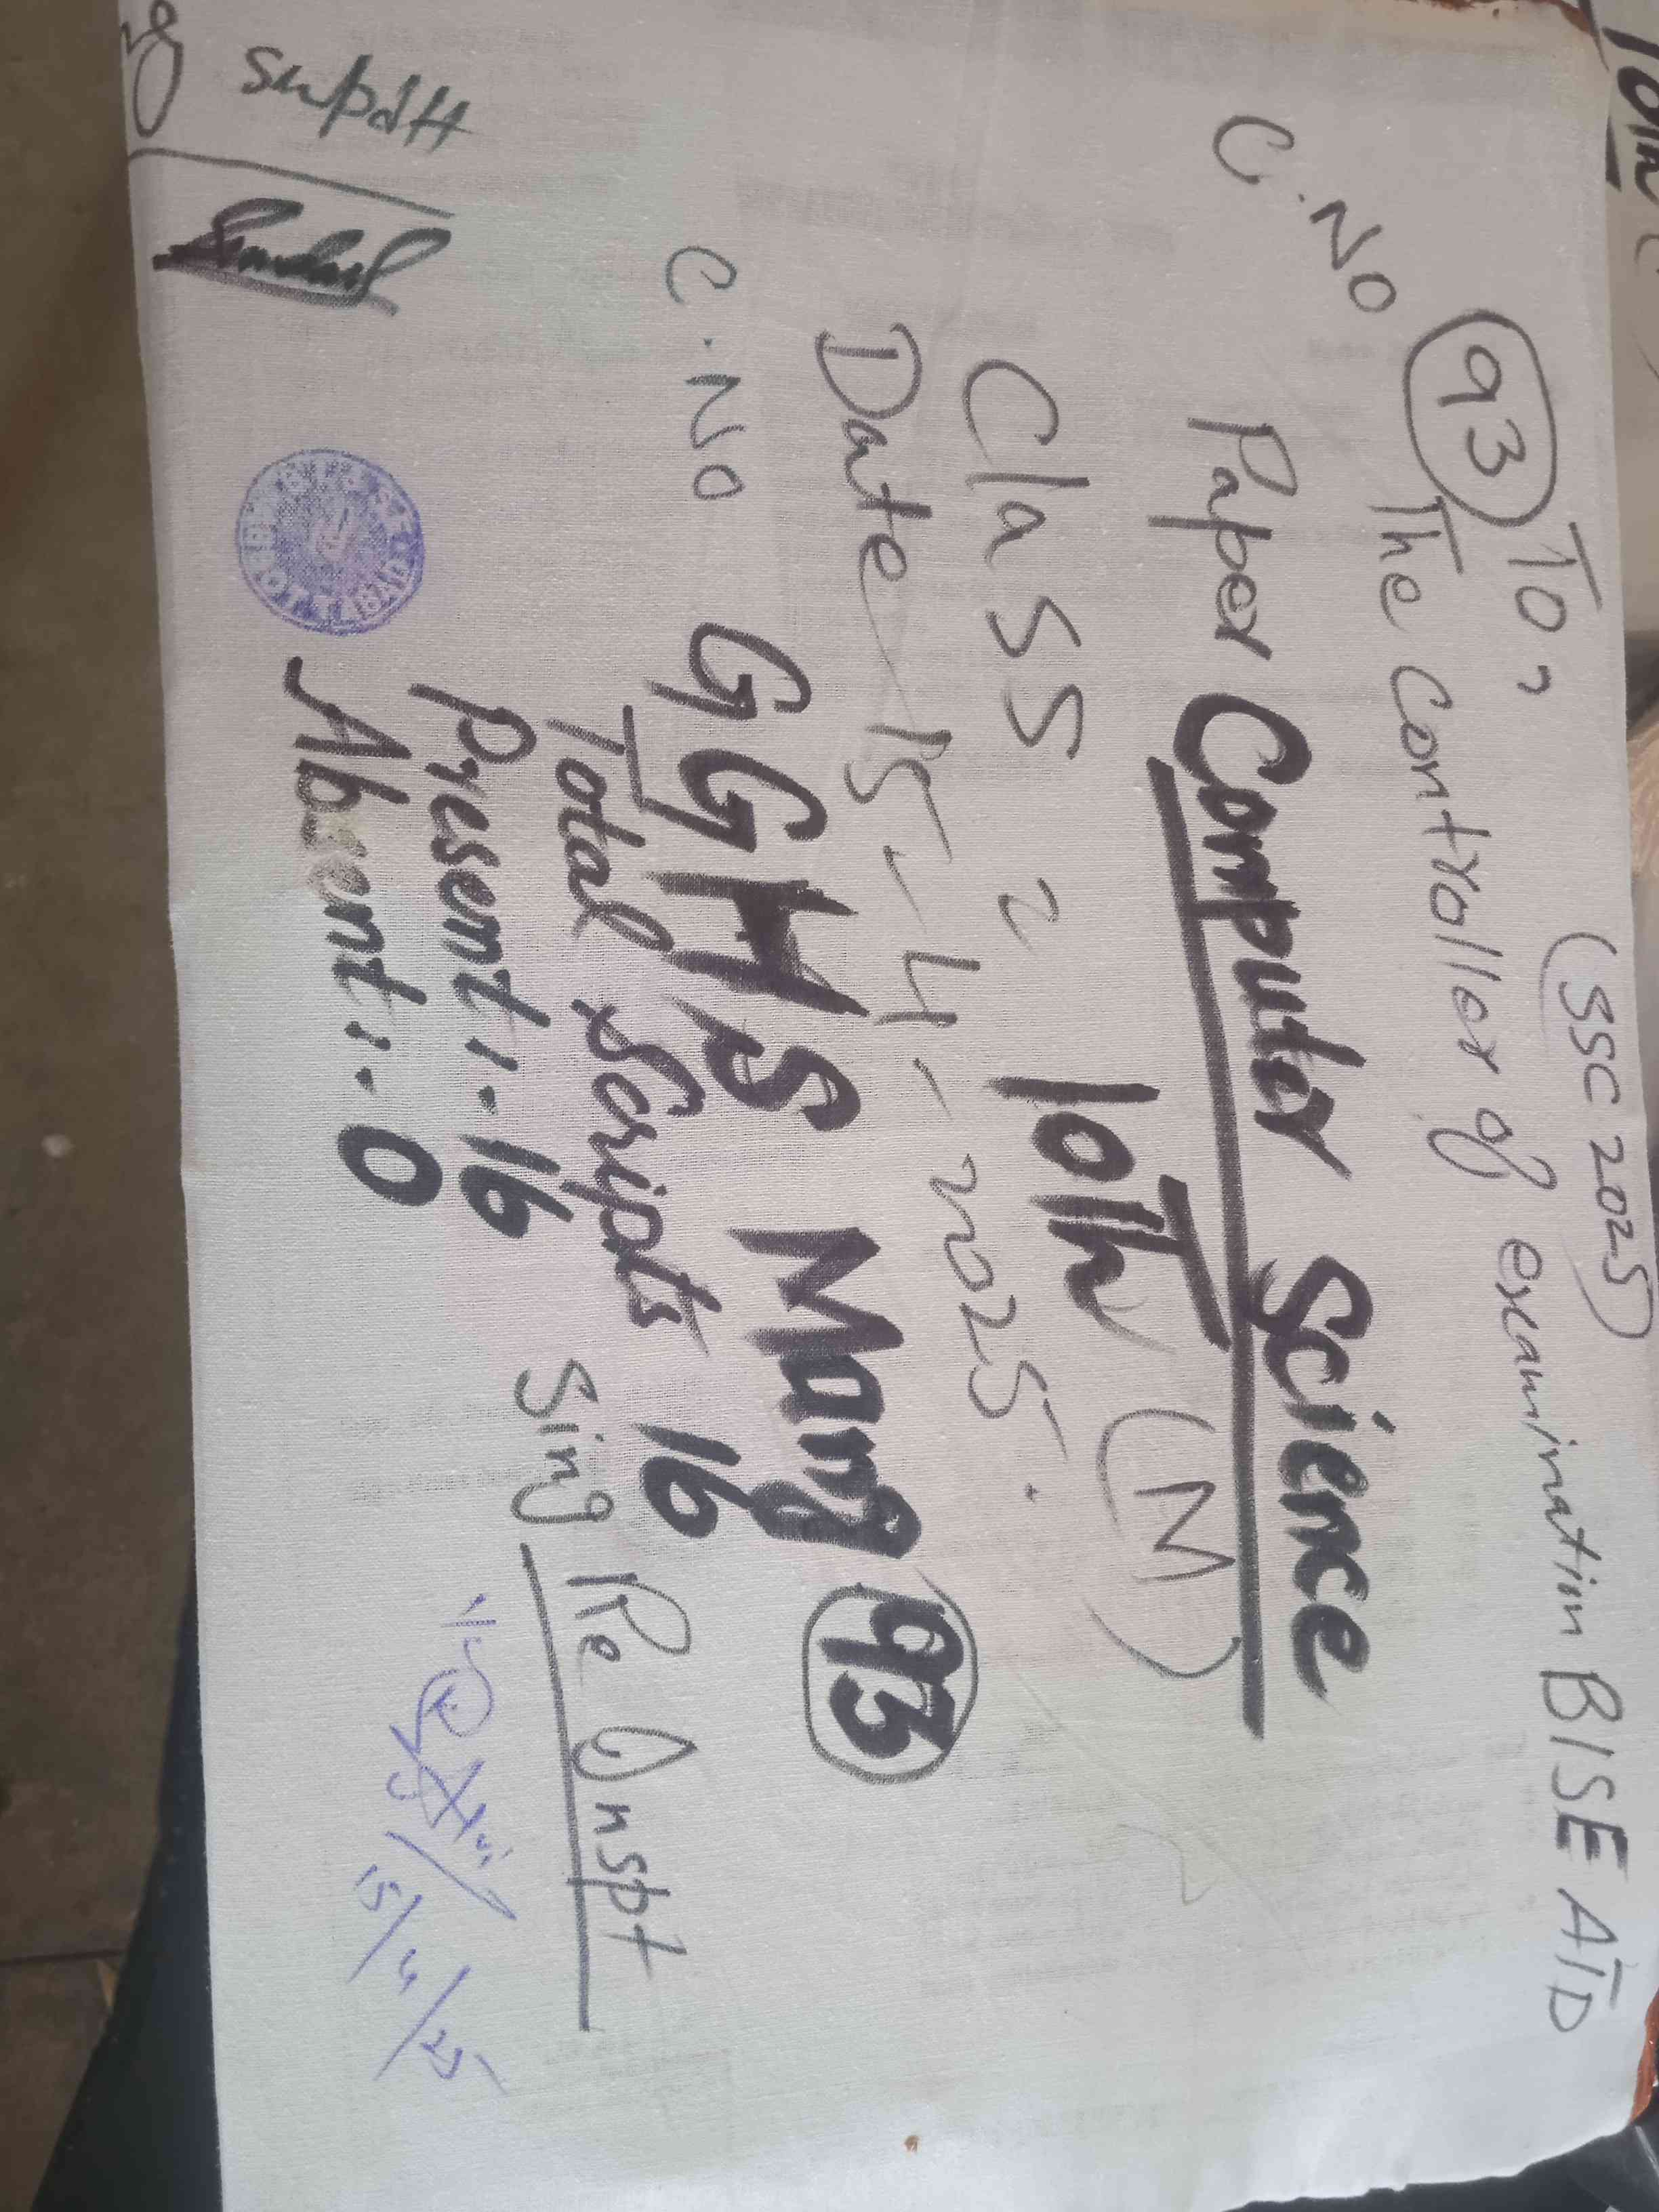 (SSC 2025)
To,
The Controller of examination BISE ATD
C.NO 93
Paper Computer Science
Class = 10Th (M)
Date 15-4-2025.
C.NO GGHSS Mang 93
Total Scripts 16
Present:. 16
Absent:. 0
Sing Re Inspt
15/4/25
Supdtt
ABBOTTABAD